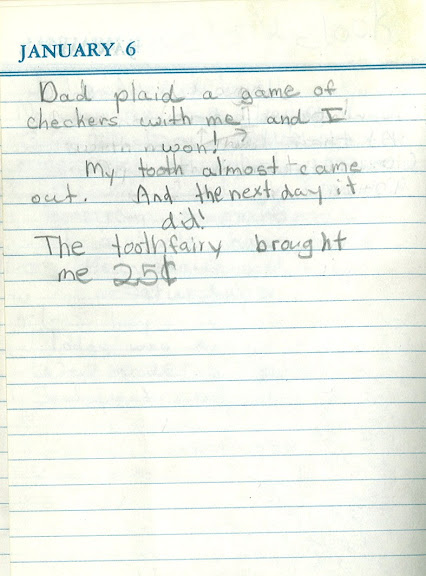 JANUARY 6
Dad plaid a game of
checkers with me and I
won!
My tooth almost came
out. And the next day it
did!
The toothfairy brought
me 25¢